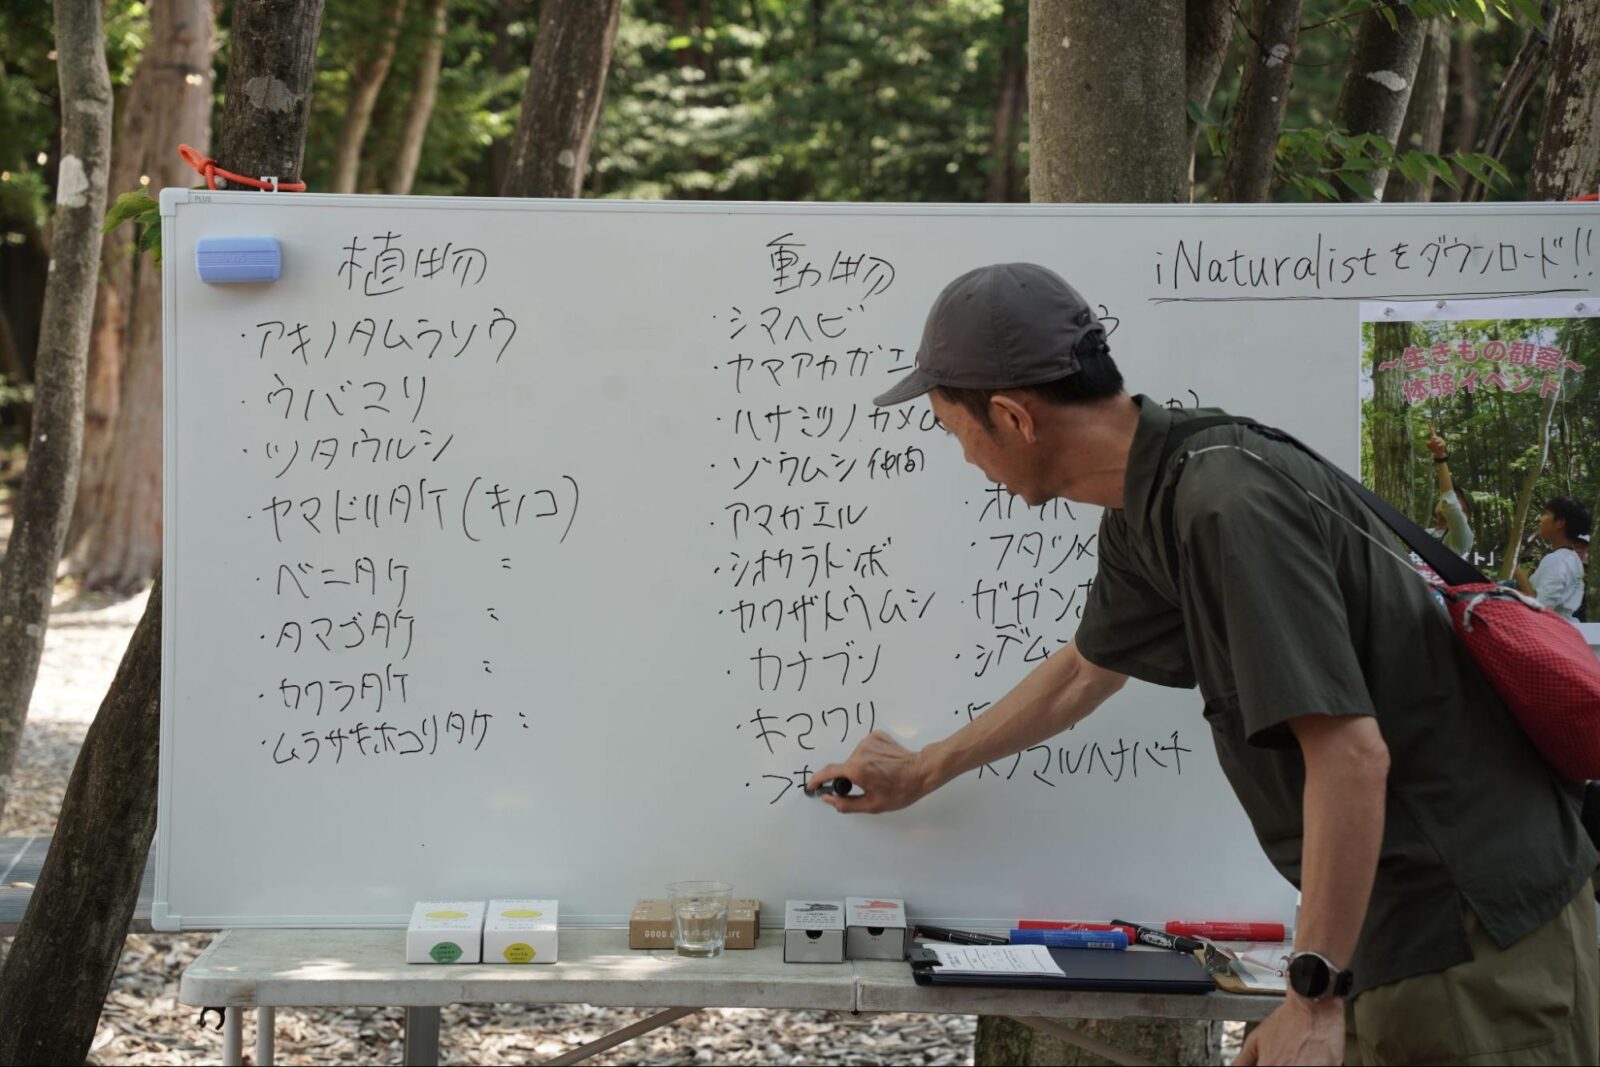 PLUS
植物
・アキノタムラソウ
・ウバユリ
・ツタウルシ
・ヤマドリタケ(キノコ)
・ベニタケ 〃
・タマゴタケ 〃
・カワラタケ 〃
・ムラサキホコリタケ 〃
動物
・シマヘビ
・ヤマアカガエ
・ハサミツノカメム
・ゾウムシ仲間
・アマガエル
・シオカラトンボ
・カワザトウムシ
・カナブン
・キマワリ
・フタツメ
・ガガンボ
・シデム
トラマルハナバチ
iNaturalistをダウンロード!!
～生きもの観察～
体験イベント
GOOD
LIFE